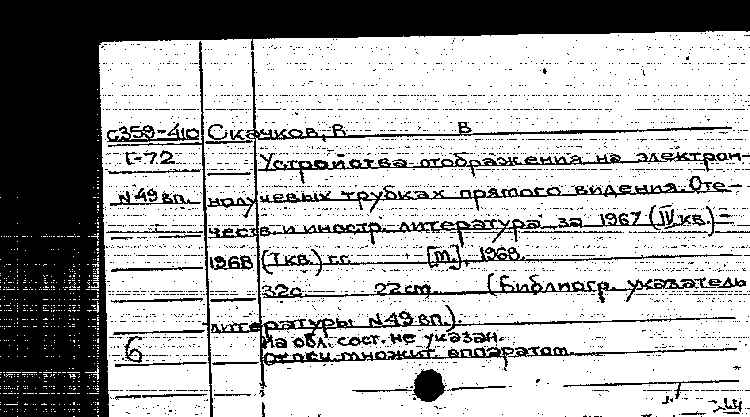 С359-410 Скачков, В В
Г-72 Устройства отображения на электрон-
N49вп. нолучевых трубках прямого видения. Оте-
честв. и иностр. литература за 1967 (IV кв.) -
1968 (I кв.) г.г. [М.], 1968.
32с. 22см. (Библиогр. указатель
литературы N49вп.).
6 На обл. сост. не указан.
Отпеч. множит. аппаратом.